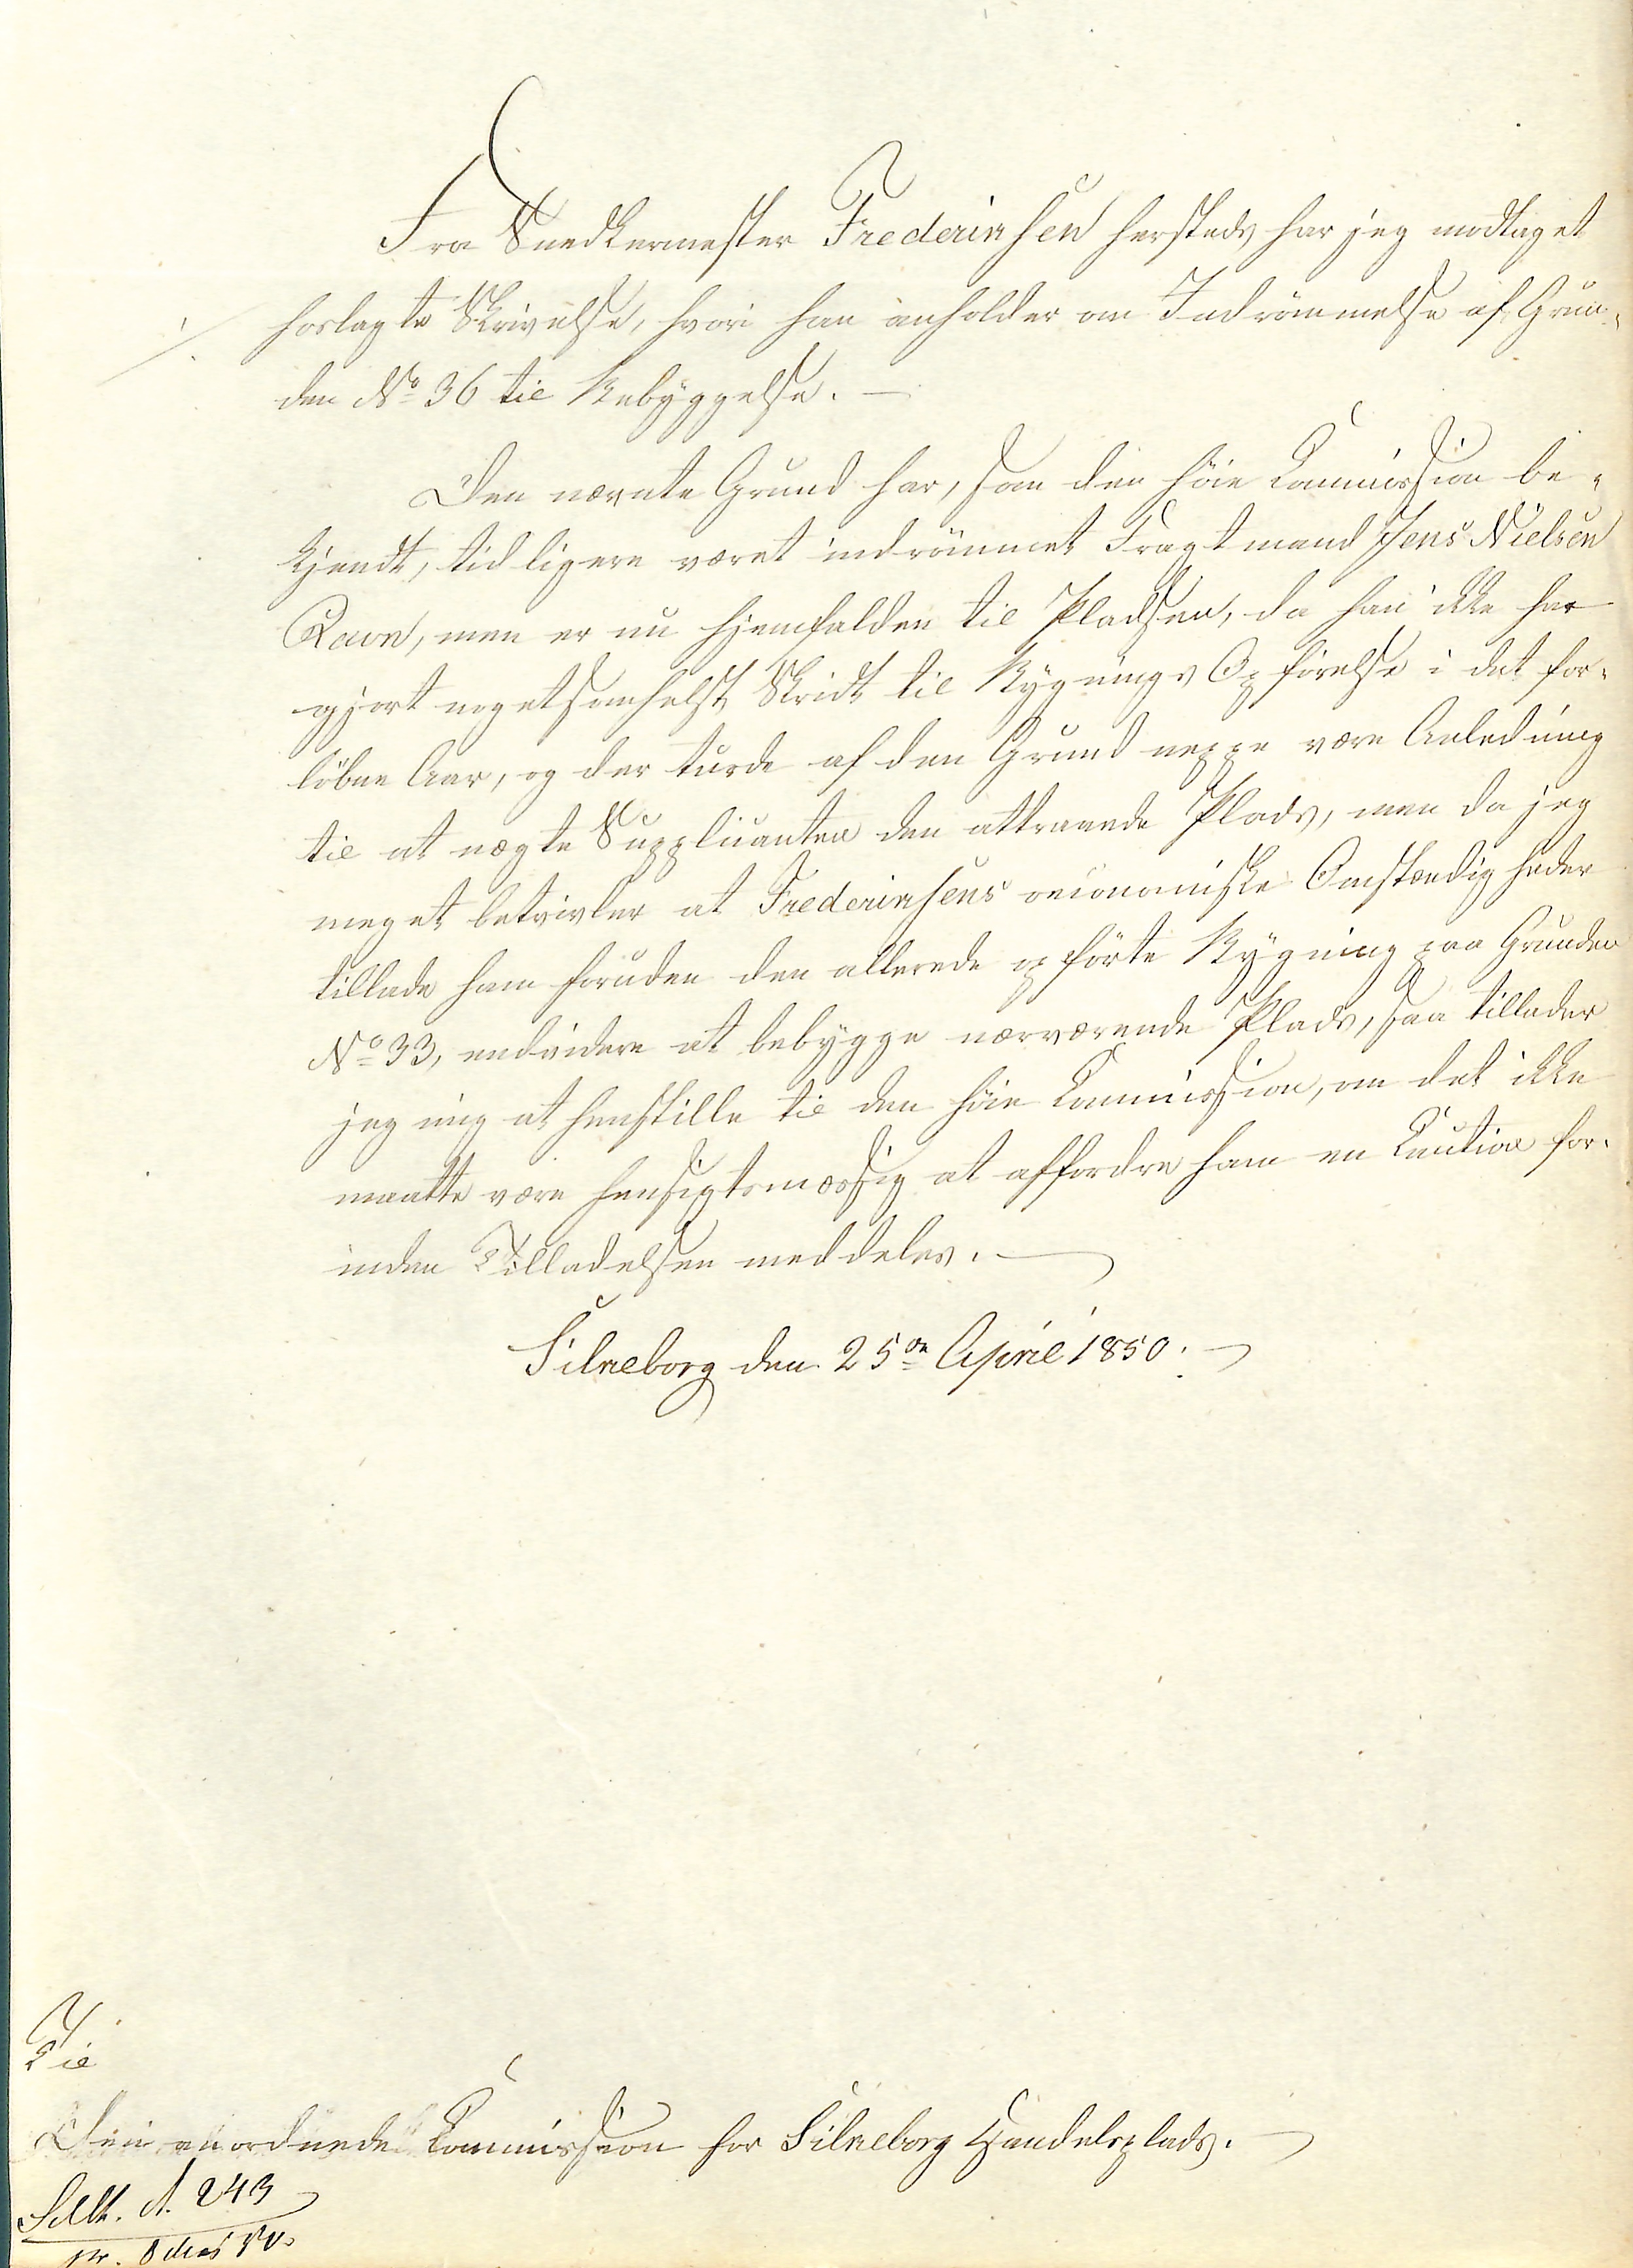 Fra Snedkermester Frederiksen hersteds har jeg modtaget
hoslagte Skrivelse, hvori han anholder om Indrömmelse af Grun-
den No 36 til Bebyggelse. —
Den nævnte Grund har, som den höie Commission be-
kjendt, tidligere været indrömmet Fragtmand Jens Nielsen
Ravn, men er nu hjemfalden til Pladsen, da han ikke har
gjort nogetsomhelst Skridt til Bygnings Opförelse i det for-
löbne Aar, og der turde af den Grund neppe være Anledning
til at nægte Supplicanten den attraaede Plads, men da jeg
meget betvivler at Frederiksens oeconomiske Omstændigheder
tillade ham foruden den allerede opförte Bygning paa Grunden
No 33, endvidere at bebygge nærværende Plads, saa tillader
jeg mig at henstille til den höie Commission, om det ikke
maatte være hensigtsmæssig at affordre ham en Caution for-
inden Tilladelsen meddeles. —
Silkeborg den 25de April 1850. —
Til
Den anordnede Commission for Silkeborg Handelsplads. —
Silk. A. 243
pr. 8 Mai 50.